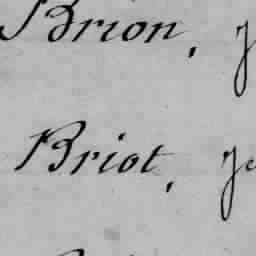 Brion,
Briot,